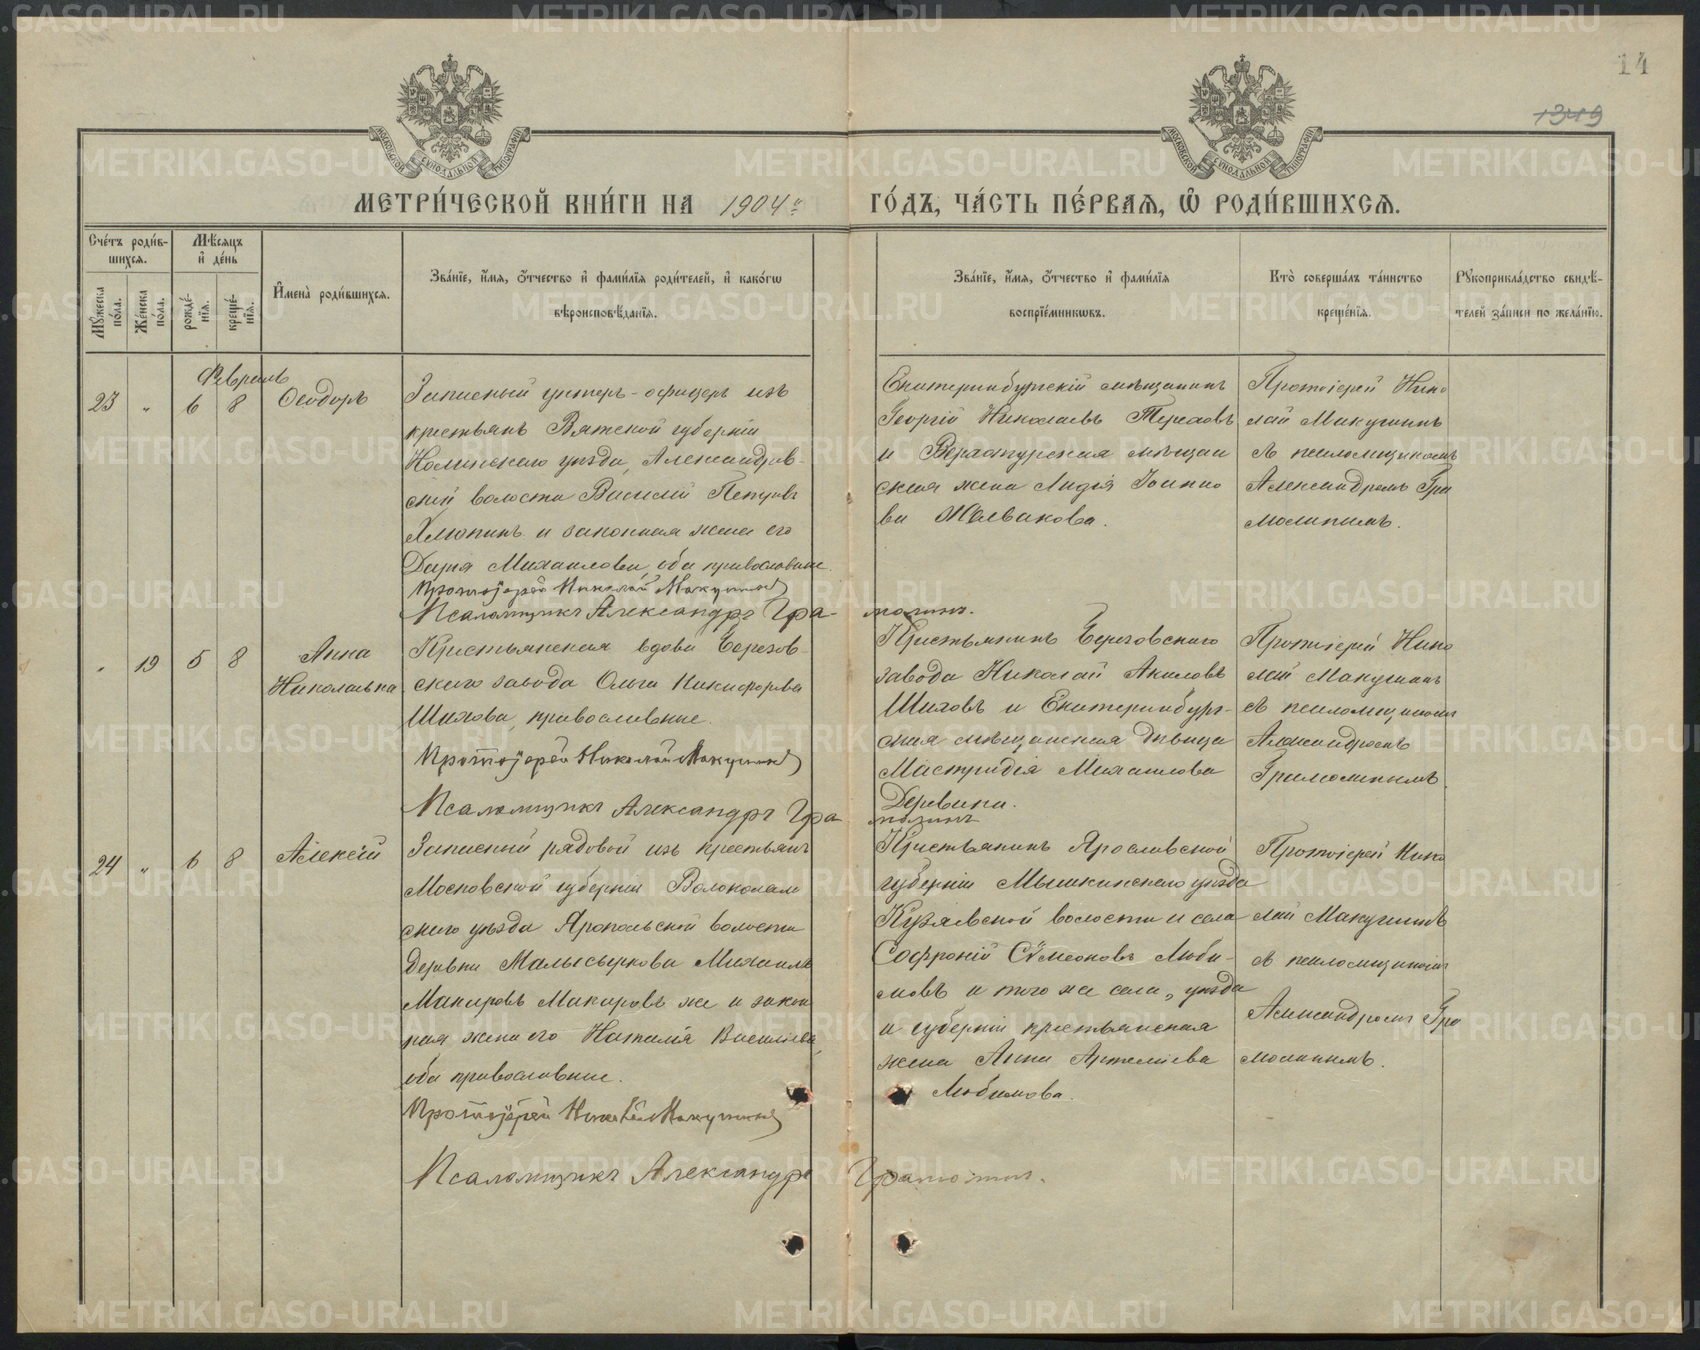 14
1349
МОСКОВСКОЙ СѴНОДАЛЬНОЙ ТИПОГРАФІИ
МОСКОВСКОЙ СѴНОДАЛЬНОЙ ТИПОГРАФІИ
МЕТРИ́ЧЕСКОЙ КНИ́ГИ НА 1904 й ГО́ДЪ, ЧА́СТЬ ПЕ́РВАѦ, Ѡ РОДИ́ВШИХСѦ.
Сче́тъ роди́в-
шихся.
Мꙋ́жеска по́ла.
Же́нска по́ла.
Мѣ́сяцъ
и҆ де́нь
рожде́-
нїя.
креще́-
нїя.
И҆мена̀ роди́вшихся.
Зва́нїе, и҆́мя, ѻ҆́тчество и҆ фами́лїя роди́телей, и҆ како́гѡ
вѣроисповѣ́данїя.
Зва́нїе, и҆́мя, ѻ҆́тчество и҆ фами́лїя
воспрїе́мникѡвъ.
Кто̀ соверша́лъ та́инство
креще́нїя.
Рꙋкоприкла́дство свидѣ́-
телей за́писи по жела́нїю.
Февраль
23 " 6 8 Ѳеодоръ
Запасный унтеръ-офицеръ изъ
крестьянъ Вятской губерніи
Нолинскаго уѣзда, Александров-
ской волости Василій Петровъ
Хлюпинъ и законная жена его
Дарья Михаилова, оба православные.
Протоіерей Николай Макушинъ
Псаломщикъ Александръ Гра-
молинъ.
Екатеринбургскій мѣщанинъ
Георгій Николаевъ Тереховъ
и Верхотурская мѣщан
ская жена Лидія Іоанно
ва Жолвакова.
Протоіерей Нико
лай Макушинъ
съ псаломщикомъ
Александромъ Гра
молинымъ.
" 19 5 8 Анна
Николаевна
Крестьянская вдова Березов-
скаго завода Ольга Никифорова
Шилова, православная.
Протоіерей Николай Макушинъ
Псаломщикъ Александръ Гра
молинъ
Крестьянинъ Березовскаго
завода Николай Акиловъ
Шиловъ и Екатеринбург-
ская мѣщанская дѣвица
Мастридія Михаилова
Деревина.
Протоіерей Нико
лай Макушинъ
съ псаломщикомъ
Александромъ
Грамолинымъ.
24 " 6 8 Алексій
Запасный рядовой изъ крестьянъ
Московской губерніи Волоколам
скаго уѣзда Яропольской волости
деревни Малысыркова Михаилъ
Макаровъ Макаровъ же и закон
ная жена его Наталія Василіева,
оба православные.
Протоіерей Николай Макушинъ
Псаломщикъ Александръ Грамолинъ.
Крестьянинъ Ярославской
губерніи Мышкинскаго уѣзда
волости и села
Софроній Сѵмеоновъ Люби-
мовъ и того же села, уѣзда
и губерніи крестьянская
жена Анна Артеміева
Любимова.
Протоіерей Нико
лай Макушинъ
съ псаломщикомъ
Александромъ Гра
молинымъ.
METRIKI.GASO-URAL.RU